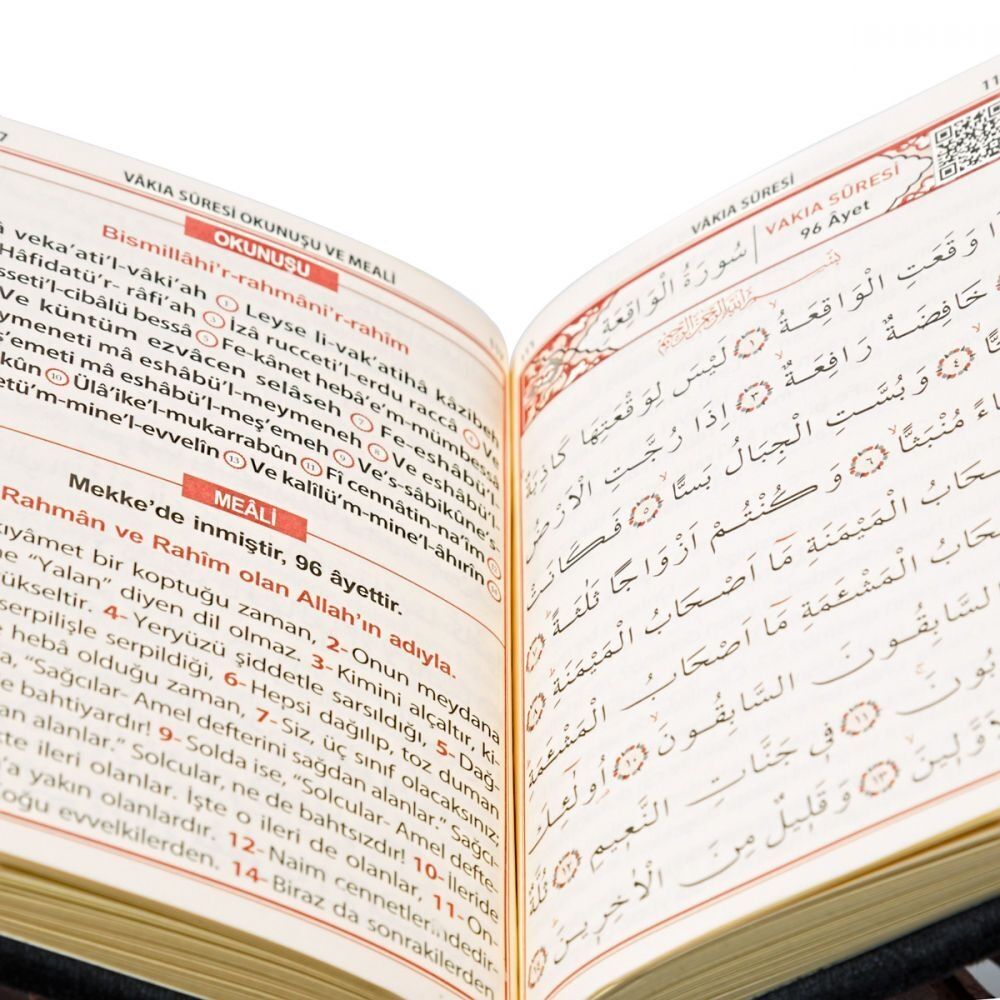 7
VÂKIA SÛRESİ OKUNUŞU VE MEALİ
OKUNUŞU
Bismillâhi'r-rahmâni'r-rahîm
veka'ati'l-vâki'ah ① Leyse li-vak'atihâ kâzibeh
Hâfidatü'r- râfi'ah ③ İzâ rucceti'l-erdu raccâ ④ Ve
sseti'l-cibâlü bessâ ⑤ Fe-kânet hebâ'e'm-mümbessâ
Ve küntüm ezvâcen selâseh ⑦ Fe-eshâbü'l-
ymeneti mâ eshâbü'l-meymeneh ⑧ Ve eshâbü'l-
ş'emeti mâ eshâbü'l-meş'emeh ⑨ Ve's-sâbikûne's-
kûn ⑩ Ülâ'ike'l-mukarrabûn ⑪ Fî cennâtin-na'îm ⑫
etü'm-mine'l-evvelîn ⑬ Ve kalîlü'm-mine'l-âhırîn ⑭
MEÂLİ
Mekke'de inmiştir, 96 âyettir.
Rahmân ve Rahîm olan Allah'ın adıyla.
kıyâmet bir koptuğu zaman, 2- Onun meydana
ne "Yalan" diyen dil olmaz. 3- Kimini alçaltır, ki-
yükseltir. 4- Yeryüzü şiddetle sarsıldığı, 5- Dağ-
serpilişle serpildiği, 6- Hepsi dağılıp, toz duman
heba olduğu zaman, 7- Siz, üç sınıf olacaksınız;
a, "Sağcılar- Amel defterini sağdan alanlar." Sağcı-
e bahtiyardır! 9- Solda ise, "Solcular- Amel defte-
an alanlar." Solcular, ne de bahtsızdır! 10- İleride
te ileri olanlar. İşte o ileri de olanlar, 11- On-
'a yakın olanlardır. 12- Naim cennetlerindedir-
Çoğu evvelkilerden. 14- Biraz da sonrakilerden
11
VÂKIA SÛRESİ
سُورَةُ الْوَاقِعَةِ
VAKIA SÛRESİ
96 Âyet
وَقَعَتِ الْوَاقِعَةُ ﴿١﴾ لَيْسَ لِوَقْعَتِهَا كَاذِبَةٌ
خَافِضَةٌ رَافِعَةٌ ﴿٣﴾ اِذَا رُجَّتِ الْاَرْضُ
﴿٤﴾ وَبُسَّتِ الْجِبَالُ بَسًّا ﴿٥﴾ فَكَانَتْ
مُنْبَثًّا ﴿٦﴾ وَكُنْتُمْ اَزْوَاجًا ثَلٰثَةً ﴿٧﴾
حَابُ الْمَيْمَنَةِ مَٓا اَصْحَابُ الْمَيْمَنَةِ ﴿٨﴾
حَابُ الْمَشْـَٔمَةِ مَٓا اَصْحَابُ الْمَشْـَٔمَةِ
السَّابِقُونَ السَّابِقُونَ ﴿١٠﴾ اُولٰٓئِكَ
بُونَ ﴿١١﴾ فٖي جَنَّاتِ النَّعٖيمِ ﴿١٢﴾ ثُلَّةٌ
وَّلٖينَ ﴿١٣﴾ وَقَلٖيلٌ مِنَ الْاٰخِرٖينَ ﴿١٤﴾